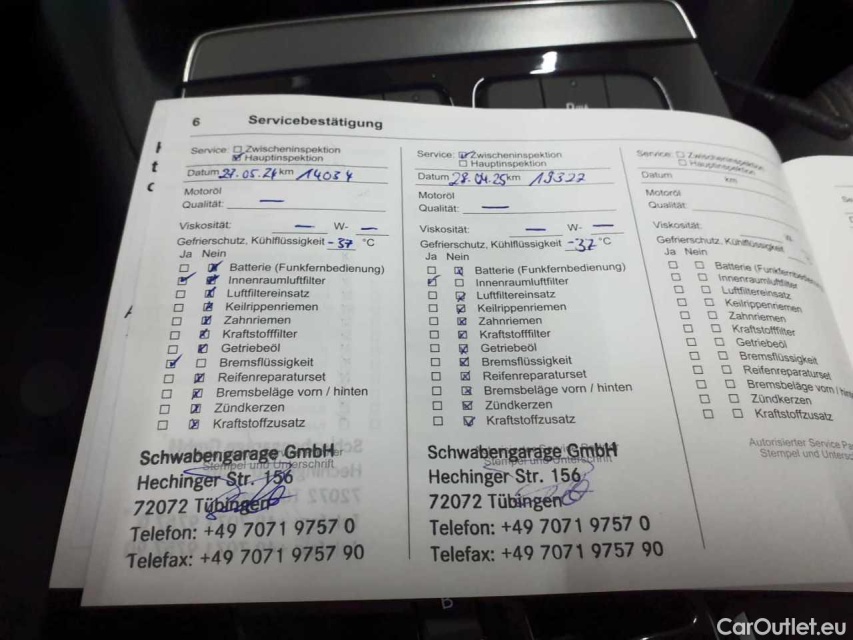 6 Servicebestätigung
Service: Zwischeninspektion
Hauptinspektion
Datum 27.05.24 km 14034
Motoröl
Qualität: —
Viskosität: — W- —
Gefrierschutz, Kühlflüssigkeit -37 °C
Ja Nein
Batterie (Funkfernbedienung)
Innenraumluftfilter
Luftfiltereinsatz
Keilrippenriemen
Zahnriemen
Kraftstofffilter
Getriebeöl
Bremsflüssigkeit
Reifenreparaturset
Bremsbeläge vorn / hinten
Zündkerzen
Kraftstoffzusatz
Schwabengarage GmbH
Stempel und Unterschrift
Hechinger Str. 156
72072 Tübingen
Telefon: +49 7071 9757 0
Telefax: +49 7071 9757 90
Service: Zwischeninspektion
Hauptinspektion
Datum 28.04.25 km 19322
Motoröl
Qualität: —
Viskosität: — W- —
Gefrierschutz, Kühlflüssigkeit -37 °C
Ja Nein
Batterie (Funkfernbedienung)
Innenraumluftfilter
Luftfiltereinsatz
Keilrippenriemen
Zahnriemen
Kraftstofffilter
Getriebeöl
Bremsflüssigkeit
Reifenreparaturset
Bremsbeläge vorn / hinten
Zündkerzen
Kraftstoffzusatz
Schwabengarage GmbH
Stempel und Unterschrift
Hechinger Str. 156
72072 Tübingen
Telefon: +49 7071 9757 0
Telefax: +49 7071 9757 90
Service: Zwischeninspektion
Hauptinspektion
Datum km
Motoröl
Qualität:
Viskosität: W-
Gefrierschutz, Kühlflüssigkeit
Ja Nein
Batterie (Funkfernbedienung)
Innenraumluftfilter
Luftfiltereinsatz
Keilrippenriemen
Zahnriemen
Kraftstofffilter
Getriebeöl
Bremsflüssigkeit
Reifenreparaturset
Bremsbeläge vorn / hin
Zündkerzen
Kraftstoffzusatz
Autorisierter Service Pa
Stempel und Untersc
CarOutlet.eu